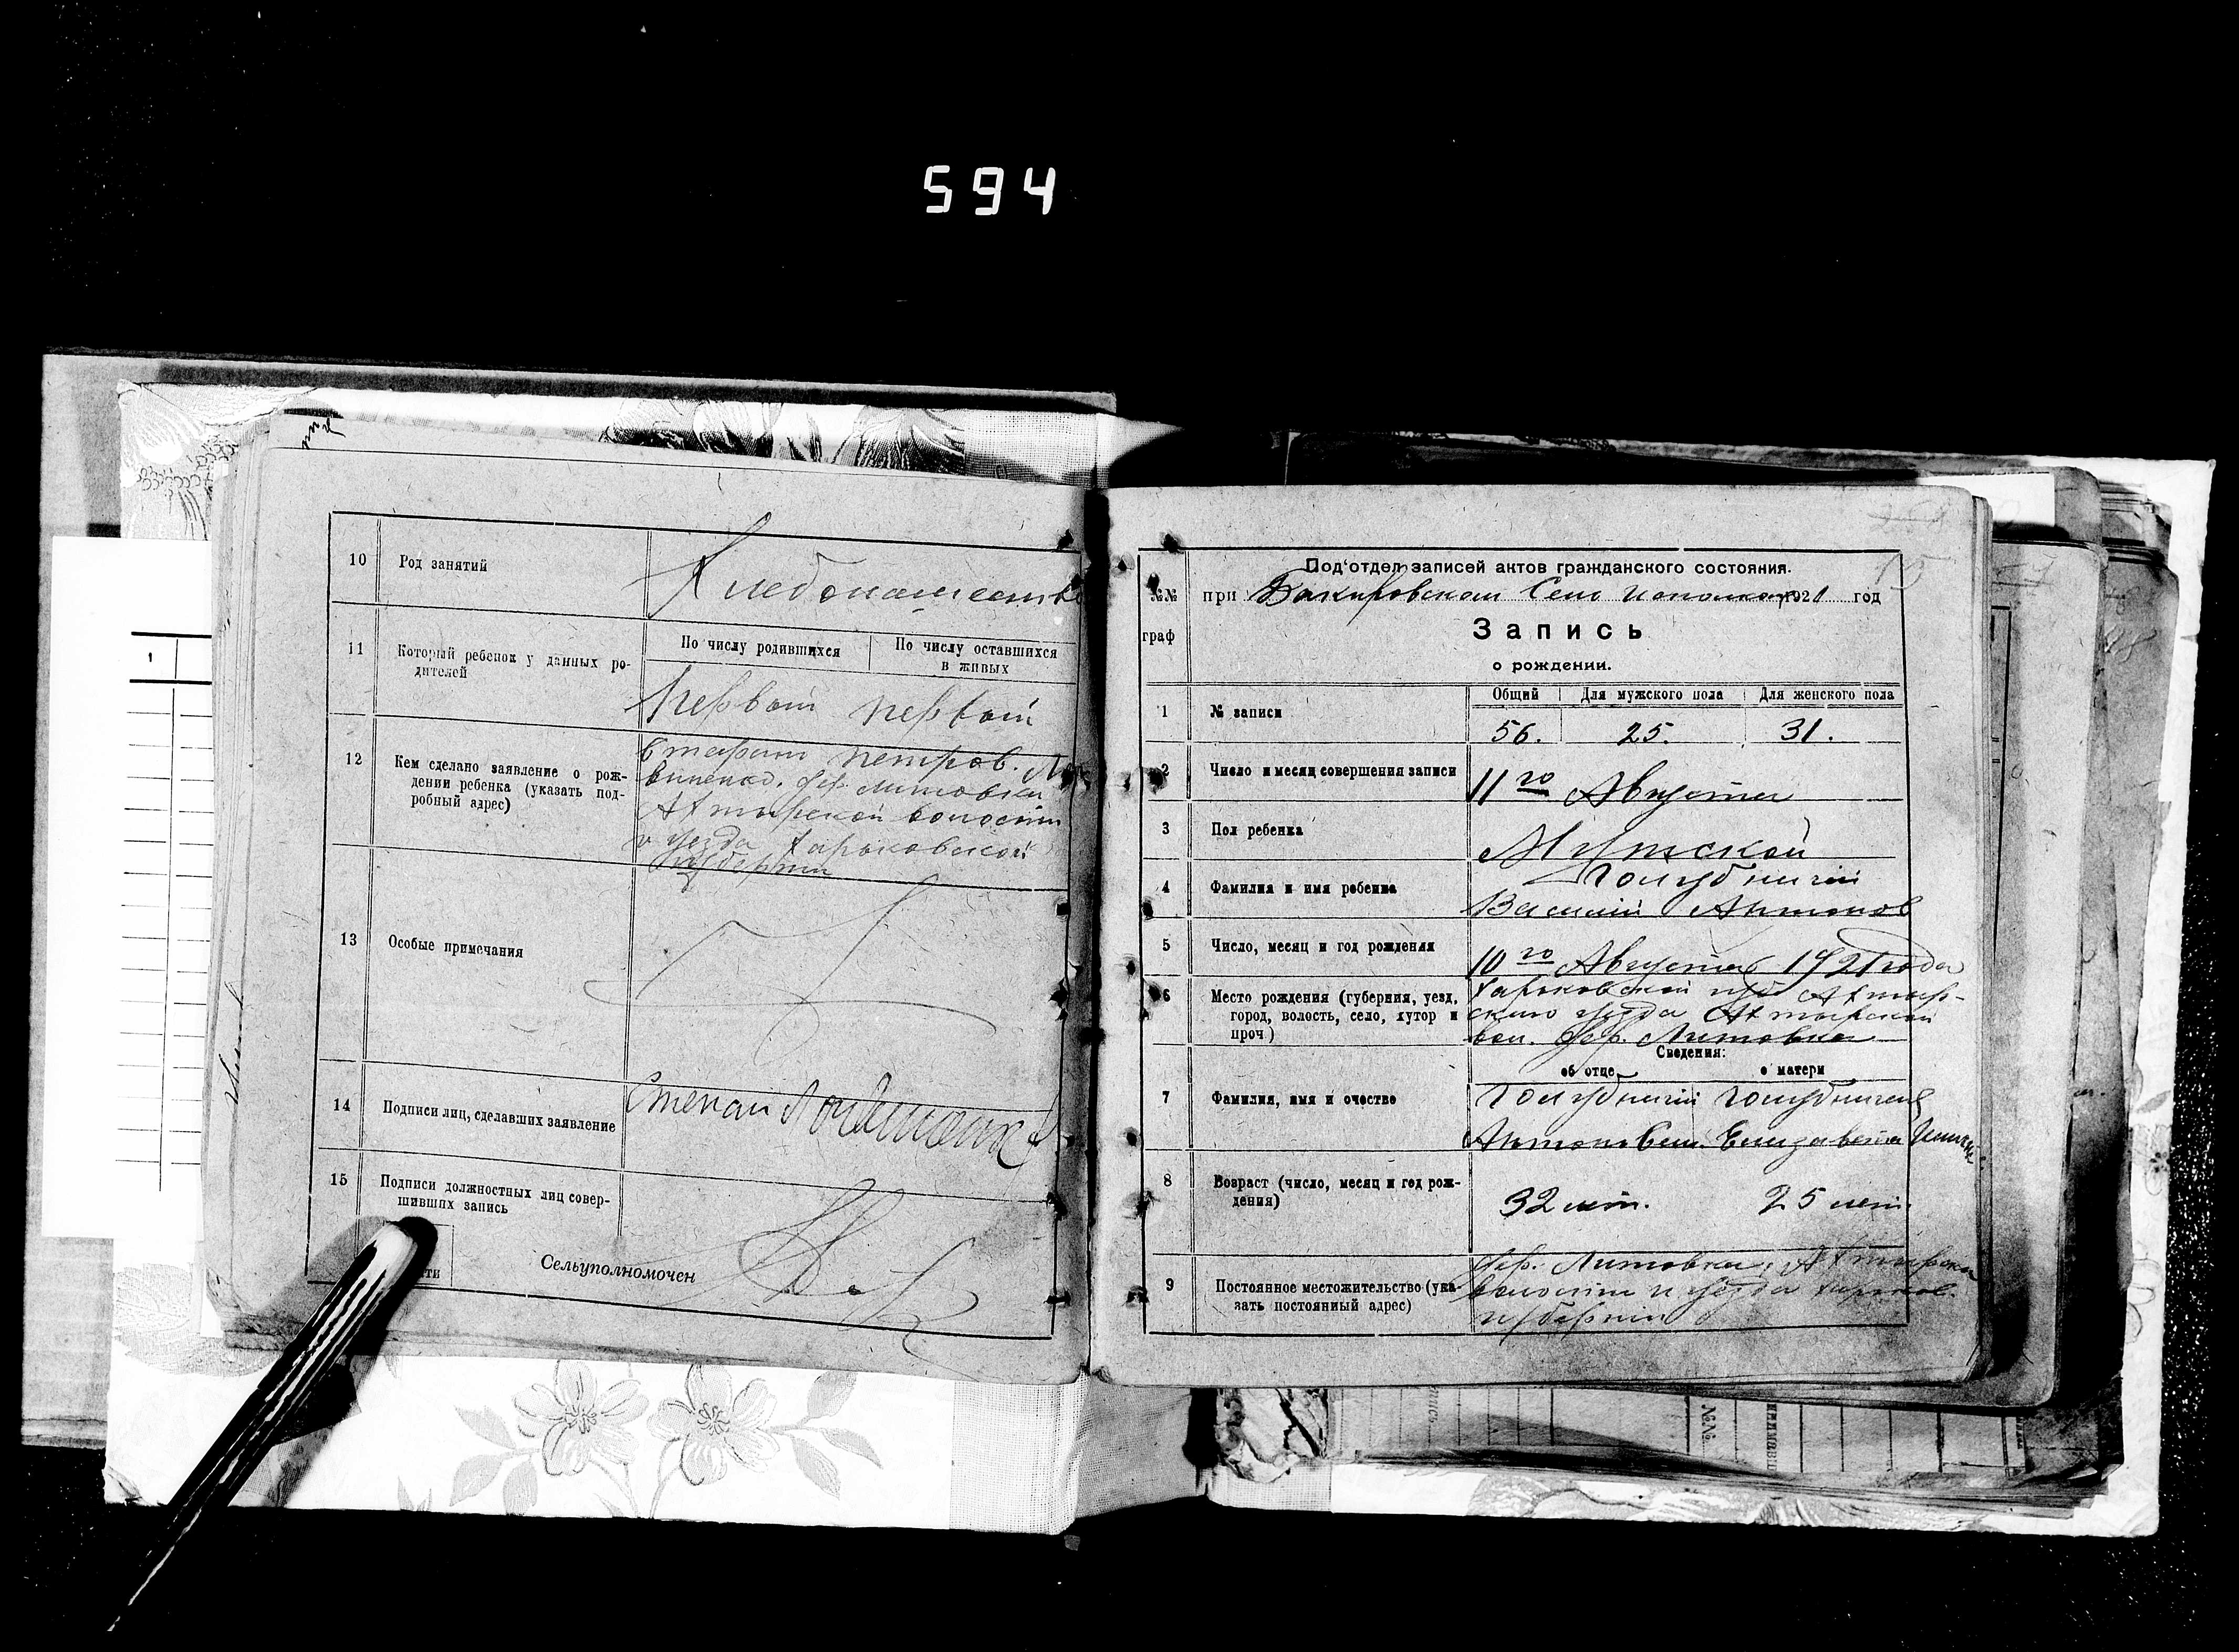 594
10 Род занятий Хлебопашество
11 Который ребенок у данных ро-
дителей
По числу родившихся
По числу оставшихся
в живых
первый первый
12 Кем сделано заявление о рож-
дении ребенка (указать под-
робный адрес)
петров.
дер. Литовка
Ахтырской волости
и уезда Харьковской
губернии
13 Особые примечания
14 Подписи лиц, сделавших заявление
Степан
15 Подписи должностных лиц совер-
шивших запись
Сельуполномочен
Под'отдел записей актов гражданского состояния.
№№ граф
при Бакировском Село исполкоме 1921 год
Запись
о рождении.
Общий Для мужского пола Для женского пола
1 № записи 56. 25. 31.
2 Число и месяц совершения записи 11го Августа
3 Пол ребенка Мужской
4 Фамилия и имя ребенка Голубничий
Василий Антонов
5 Число, месяц и год рождения 10го Августа 1921 года
6 Место рождения (губерния, уезд,
город, волость, село, хутор и
проч)
Харьковской губ Ахтыр-
ского уезда Ахтырской
вол. дер. Литовка
Сведения:
об отце о матери
7 Фамилия, имя и очество
Голубничий Голубничая
Антон Елизавета
8 Возраст (число, месяц и год рож-
дения)
32 лет. 25 лет.
9 Постоянное местожительство (ука-
зать постоянный адрес)
дер. Литовка, Ахтырской
волости и уезда Харьков.
губернии